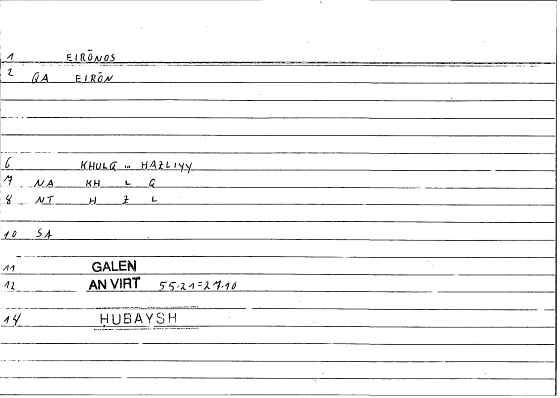 1 EIRŌNOS
2 QA EIRŌN
6 KHULQ ... HAZLIYY
7 NA KH L Q
8 NT H Z L
10 SA
11 GALEN
12 AN VIRT 55.21=27.10
14 ḤUBAYSH